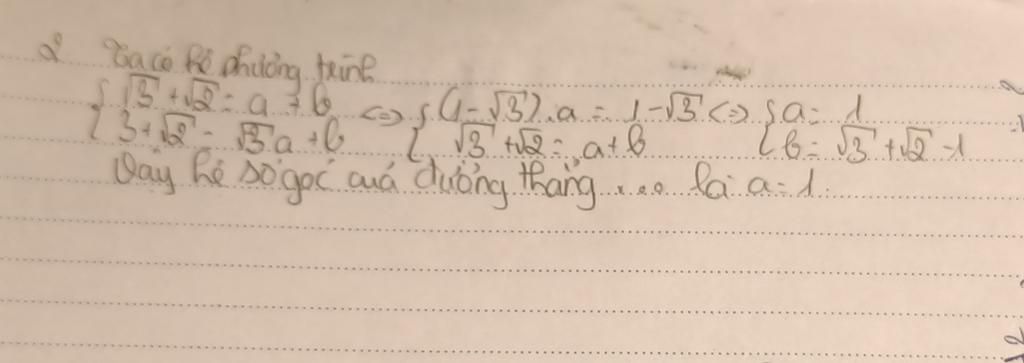 2 Ta có hệ phương trình
{ √3 + √2 = a + b <=> { (1 - √3).a = 1 - √3 <=> { a = 1
{ 3 + √2 = √3a + b { √3 + √2 = a + b { b = √3 + √2 - 1
Vậy hệ số góc của đường thẳng .... là a = 1.